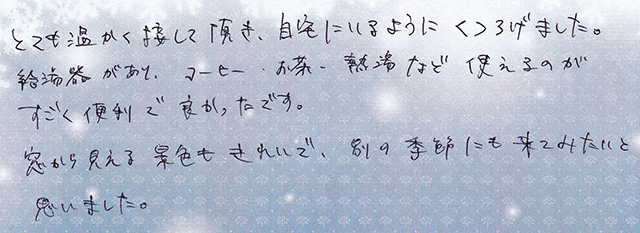 とても温かく接して頂き、自宅にいるようにくつろげました。
給湯器があり、コーヒー・お茶・熱湯など使えるのが
すごく便利で良かったです。
窓から見える景色もきれいで、別の季節にも来てみたいと
思いました。